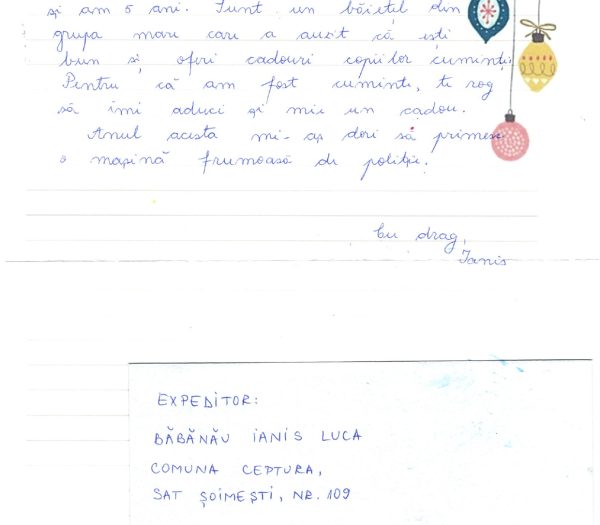 și am 5 ani. Sunt un băiețel din
grupa mare care a auzit că ești
bun și oferi cadouri copiilor cuminți.
Pentru că am fost cuminte, te rog
să îmi aduci și mie un cadou.
Anul acesta mi-aș dori să primesc
o mașină frumoasă de poliție.
Cu drag,
Ianis
EXPEDITOR:
BĂBĂNĂU IANIS LUCA
COMUNA CEPTURA,
SAT ȘOIMEȘTI, NR. 109